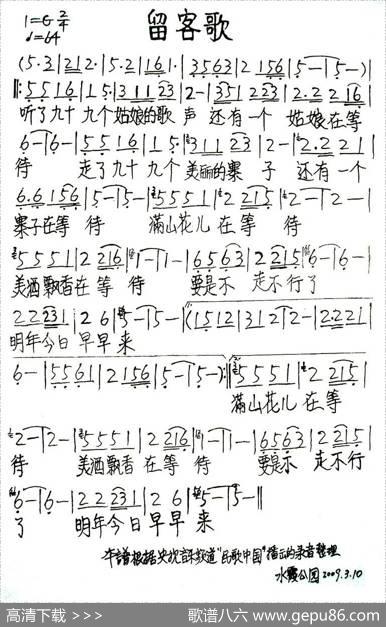 留客歌
1=G 2/4
♩=64
(5·3|212·|5·2|116·|3563|2 156|5—|5—)
‖:5516|1 5·|311 23|2—|351 223|2·2 2 16|
听了九十 九个 姑娘的歌 声 还有一个 姑娘 在等
6—|6—|5516|1 5·|311 23|2—|2·2 2 1|
待 走了九十 九个 美丽的寨 子 还有一个
6·6 156|5—|5—|5551|2 215|2—|2—|
寨子在等 待 满山花儿 在等 待
5551|2 216|1—|1—|6563|2 215|6—|6—|
美酒飘香 在等 待 要是不 走不行了
22 231|2 6|5—|5—|(1512|312|2—|2221|
明年今日 早早 来
6—|5561|2156|5—|5—):‖5551|2 215|
满山花儿 在等
2—|2—|5551|2 216|1—|1—|6563|2 215|
待 美酒飘香 在等 待 要是不 走不行
6—|6—|22 231|2 6|5—|5—‖
了 明年今日 早早 来
本谱根据央视音乐频道"民歌中国"播出的录音整理
水霞公园2009.3.10
高清下载 >>>
歌谱八六 www.gepu86.com